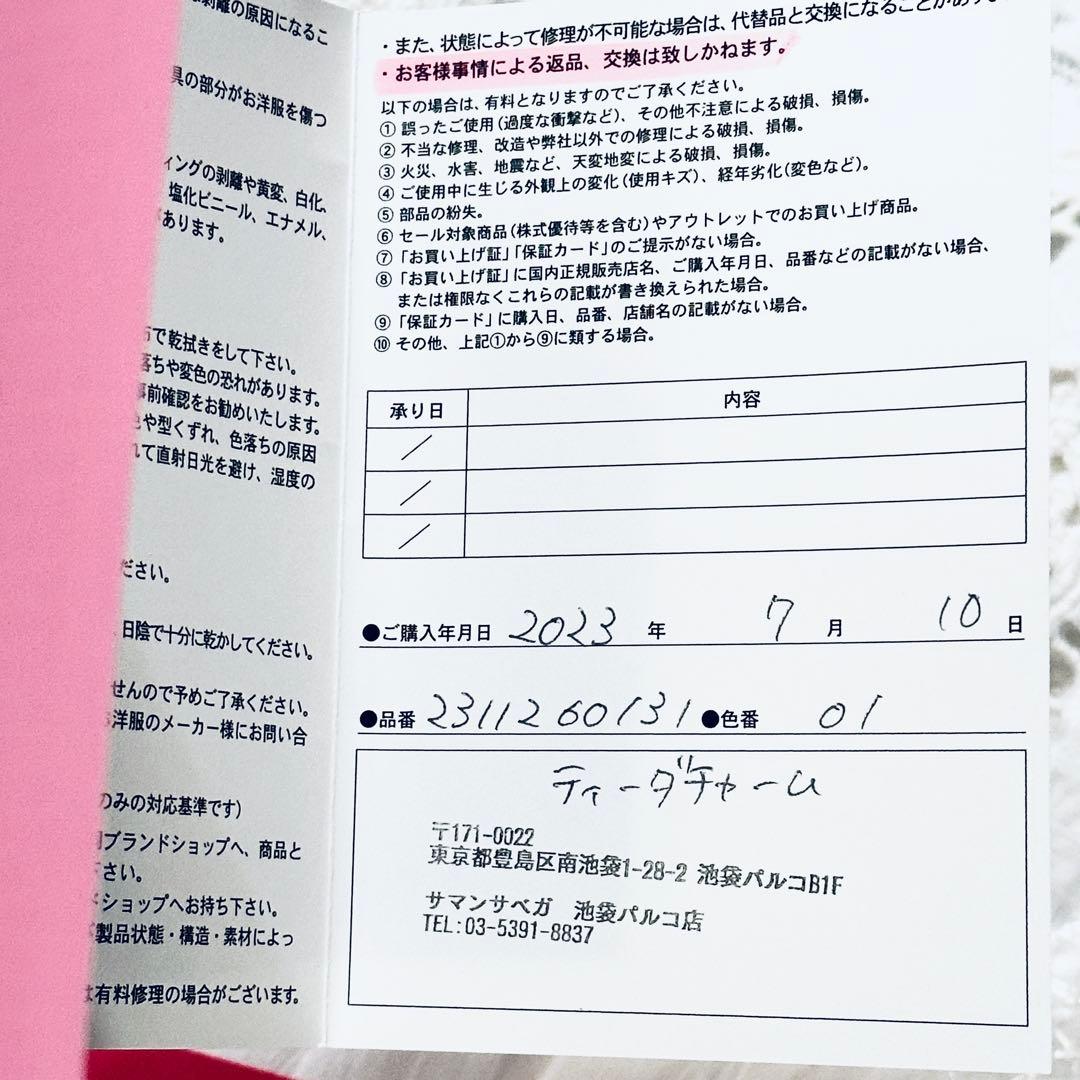 剥離の原因になるこ
具の部分がお洋服を傷つ
ィングの剥離や黄変、白化、
塩化ビニール、エナメル、
あります。
で乾拭きをして下さい。
落ちや変色の恐れがあります。
事前確認をお勧めいたします。
や型くずれ、色落ちの原因
れて直射日光を避け、湿度の
ださい。
日陰で十分に乾かしてください。
せんので予めご了承ください。
洋服のメーカー様にお問い合
のみの対応基準です)
ブランドショップへ、商品と
さい。
ドショップへお持ち下さい。
製品状態・構造・素材によっ
は有料修理の場合がございます。
・また、状態によって修理が不可能な場合は、代替品と交換になることがあり
・お客様事情による返品、交換は致しかねます。
以下の場合は、有料となりますのでご了承ください。
① 誤ったご使用(過度な衝撃など)、その他不注意による破損、損傷。
② 不当な修理、改造や弊社以外での修理による破損、損傷。
③ 火災、水害、地震など、天変地変による破損、損傷。
④ ご使用中に生じる外観上の変化(使用キズ)、経年劣化(変色など)。
⑤ 部品の紛失。
⑥ セール対象商品(株式優待等を含む)やアウトレットでのお買い上げ商品。
⑦「お買い上げ証」「保証カード」のご提示がない場合。
⑧「お買い上げ証」に国内正規販売店名、ご購入年月日、品番などの記載がない場合、
または権限なくこれらの記載が書き換えられた場合。
⑨「保証カード」に購入日、品番、店舗名の記載がない場合。
⑩ その他、上記①から⑨に類する場合。
承り日 内容
/
/
/
●ご購入年月日 2023 年 7 月 10 日
●品番 2311260131 ●色番 01
ティーダチャーム
〒171-0022
東京都豊島区南池袋1-28-2 池袋パルコB1F
サマンサベガ 池袋パルコ店
TEL:03-5391-8837